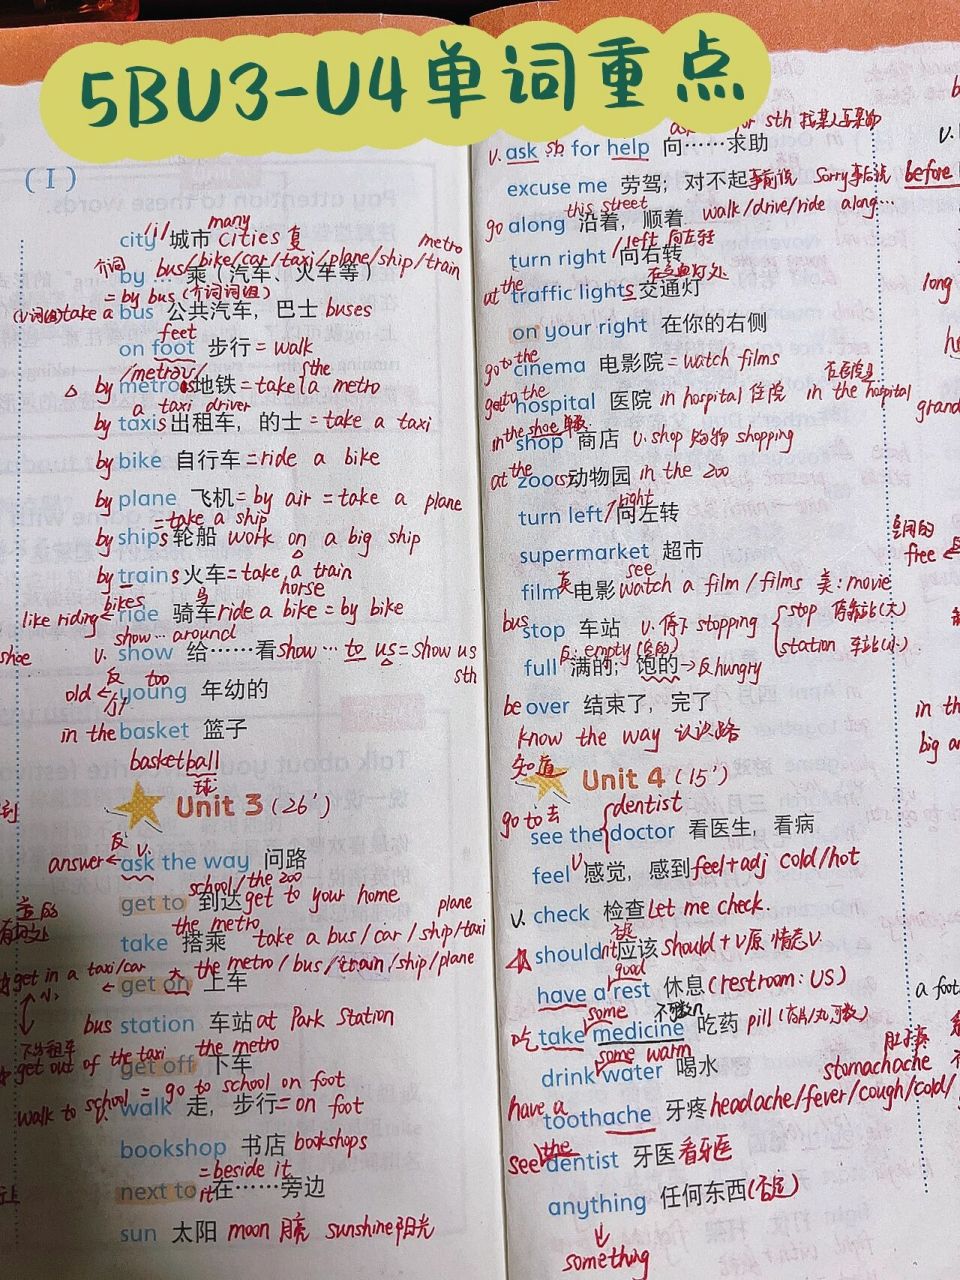 5BU3-U4单词重点
(I)
/i/ many
city 城市 cities 复
介词 bus/bike/car/taxi/plane/ship/train metro
by 乘（汽车、火车等）
= by bus (介词词组)
(V词组)take a bus 公共汽车，巴士 buses
feet
on foot 步行 = walk
/metrəʊ/ the
△ by metro 地铁 = take a metro
a taxi driver
by taxis 出租车，的士 = take a taxi
by bike 自行车 = ride a bike
by plane 飞机 = by air = take a plane
= take a ship
by ships 轮船 work on a big ship
by trains 火车 = take a train
bikes 马 horse
like riding ← ride 骑车 ride a bike = by bike
show … around
v. show 给……看 show … to us = show us sth
shoe
反 too
old ← young 年幼的
in the basket 篮子
basketball
球
Unit 3 (26')
反 v.
answer ← ask the way 问路
school/the zoo
get to 到达 get to your home
the metro plane
take 搭乘 take a bus/car/ship/taxi
get in a taxi/car 大 the metro/bus/train/ship/plane
小 ← get on 上车
bus station 车站 at Park Station
get out of the taxi the metro
get off 下车
walk to school = go to school on foot
walk 走，步行 = on foot
bookshop 书店 bookshops
= beside it
next to it 在……旁边
sun 太阳 moon 月亮 sunshine 阳光
for sth
v. ask sb … for help 向……求助
excuse me 劳驾；对不起 事前说 sorry 事后说 before
this street
go along 沿着，顺着 walk/drive/ride along…
/left 向左转
turn right 向右转
at the traffic lights 交通灯
on your right 在你的右侧
go to the cinema 电影院 = watch films
get to the hospital 医院 in hospital 住院 in the hospital 在医院里
in the shoe
shop 商店 v. shop 购物 shopping
at the zoos 动物园 in the zoo
/right
turn left 向左转
supermarket 超市
see
film 英 电影 watch a film/films 美: movie
bus stop 车站 v. 停下 stopping stop
station
反: empty (空的)
full 满的；饱的 → 反 hungry
be over 结束了，完了
know the way 认识路
知道
Unit 4 (15')
go to 去 dentist
see the doctor 看医生，看病
v
feel 感觉，感到 feel+adj cold/hot
v. check 检查 Let me check.
否定
shouldn't 应该 should + v原 情态v
good
have a rest 休息 (restroom: US)
some 不可数n
吃 take medicine 吃药 pill
some warm
drink water 喝水
stomachache
have a toothache 牙疼 headache/fever/cough/cold/
see the dentist 牙医 看牙医
anything 任何东西 (否定)
↓
something
long
free
in the
big
a foot